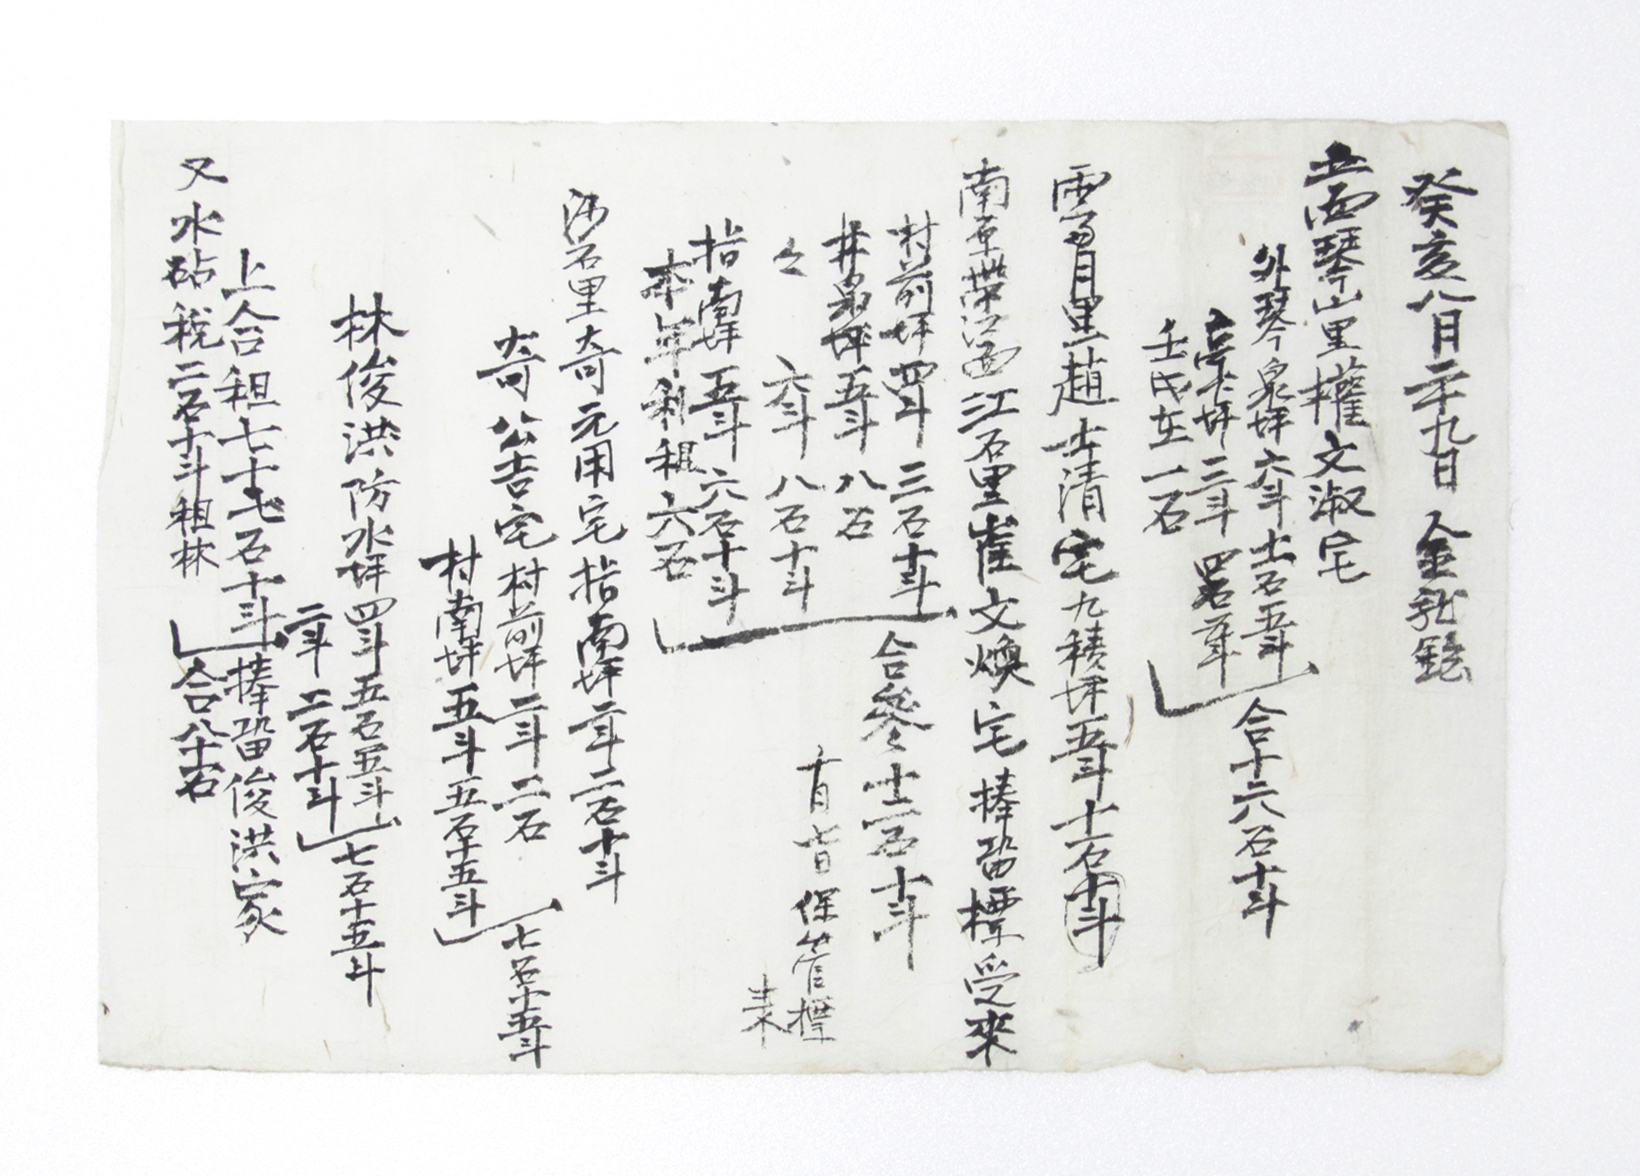 癸亥八月二十九日 金
面琴山里權文淑宅
外琴泉坪六斗 十一石五斗
亭 坪三斗 四石
壬戌在一石
合十六石十斗
月里趙士清宅九積坪五斗 十一石十斗
南原帶江面江石里崔文煥宅捧留標受來
村前坪四斗 三石十斗
井泉坪五斗 八石
々 六斗 八石十斗
指南坪五斗 六石十斗
本年利租六石
合參十二石十斗
十月 七日 保管標
來
沙石里奇元用宅 指南坪二斗 二石十斗
奇公吉宅 村前坪二斗 二石
村南坪五斗 五石十五斗
七石十五斗
林俊洪 防水坪四斗 五石五斗
二斗 二石十斗
七石十五斗
上合租七十七石十斗 捧留俊洪家
又水砧稅二石十斗租林
合八十石